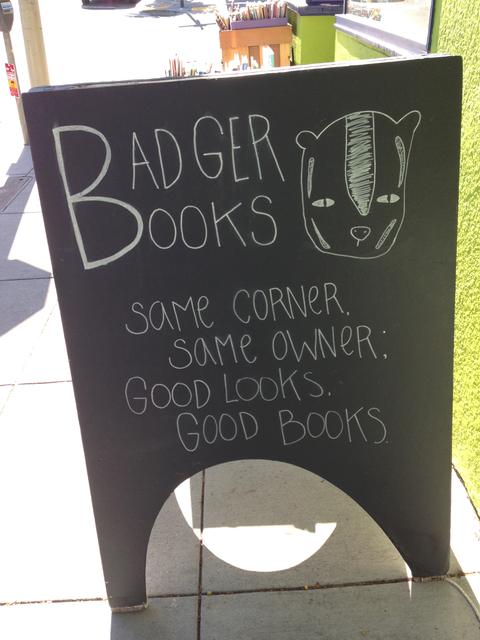 BADGER
BOOKS
SAME CORNER.
SAME OWNER;
GOOD LOOKS.
GOOD BOOKS